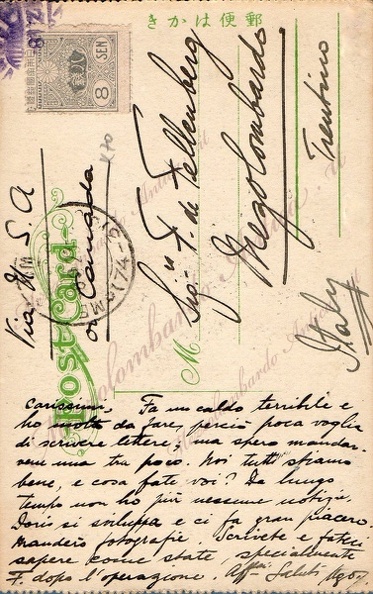 郵便はかき
8 SEN
Post Card
Via U.S.A
or Canada
Sig. F. de Fellenberg
Mezolombardo
Trentino
Italy
M
Carissimi, Fa un caldo terribile e
ho molto da fare, perciò poca voglia
di scrivere lettere, ma spero mandar-
vene una tra poco. Noi tutti stiamo
bene, e cosa fate voi? Da lungo
tempo non ho più nessune notizie.
Doris si sviluppa e ci fa gran piacere.
Manderò fotografie. Scrivete e fateci
sapere come state, specialmente
F. dopo l'operazione. Affmi Saluti Ugo